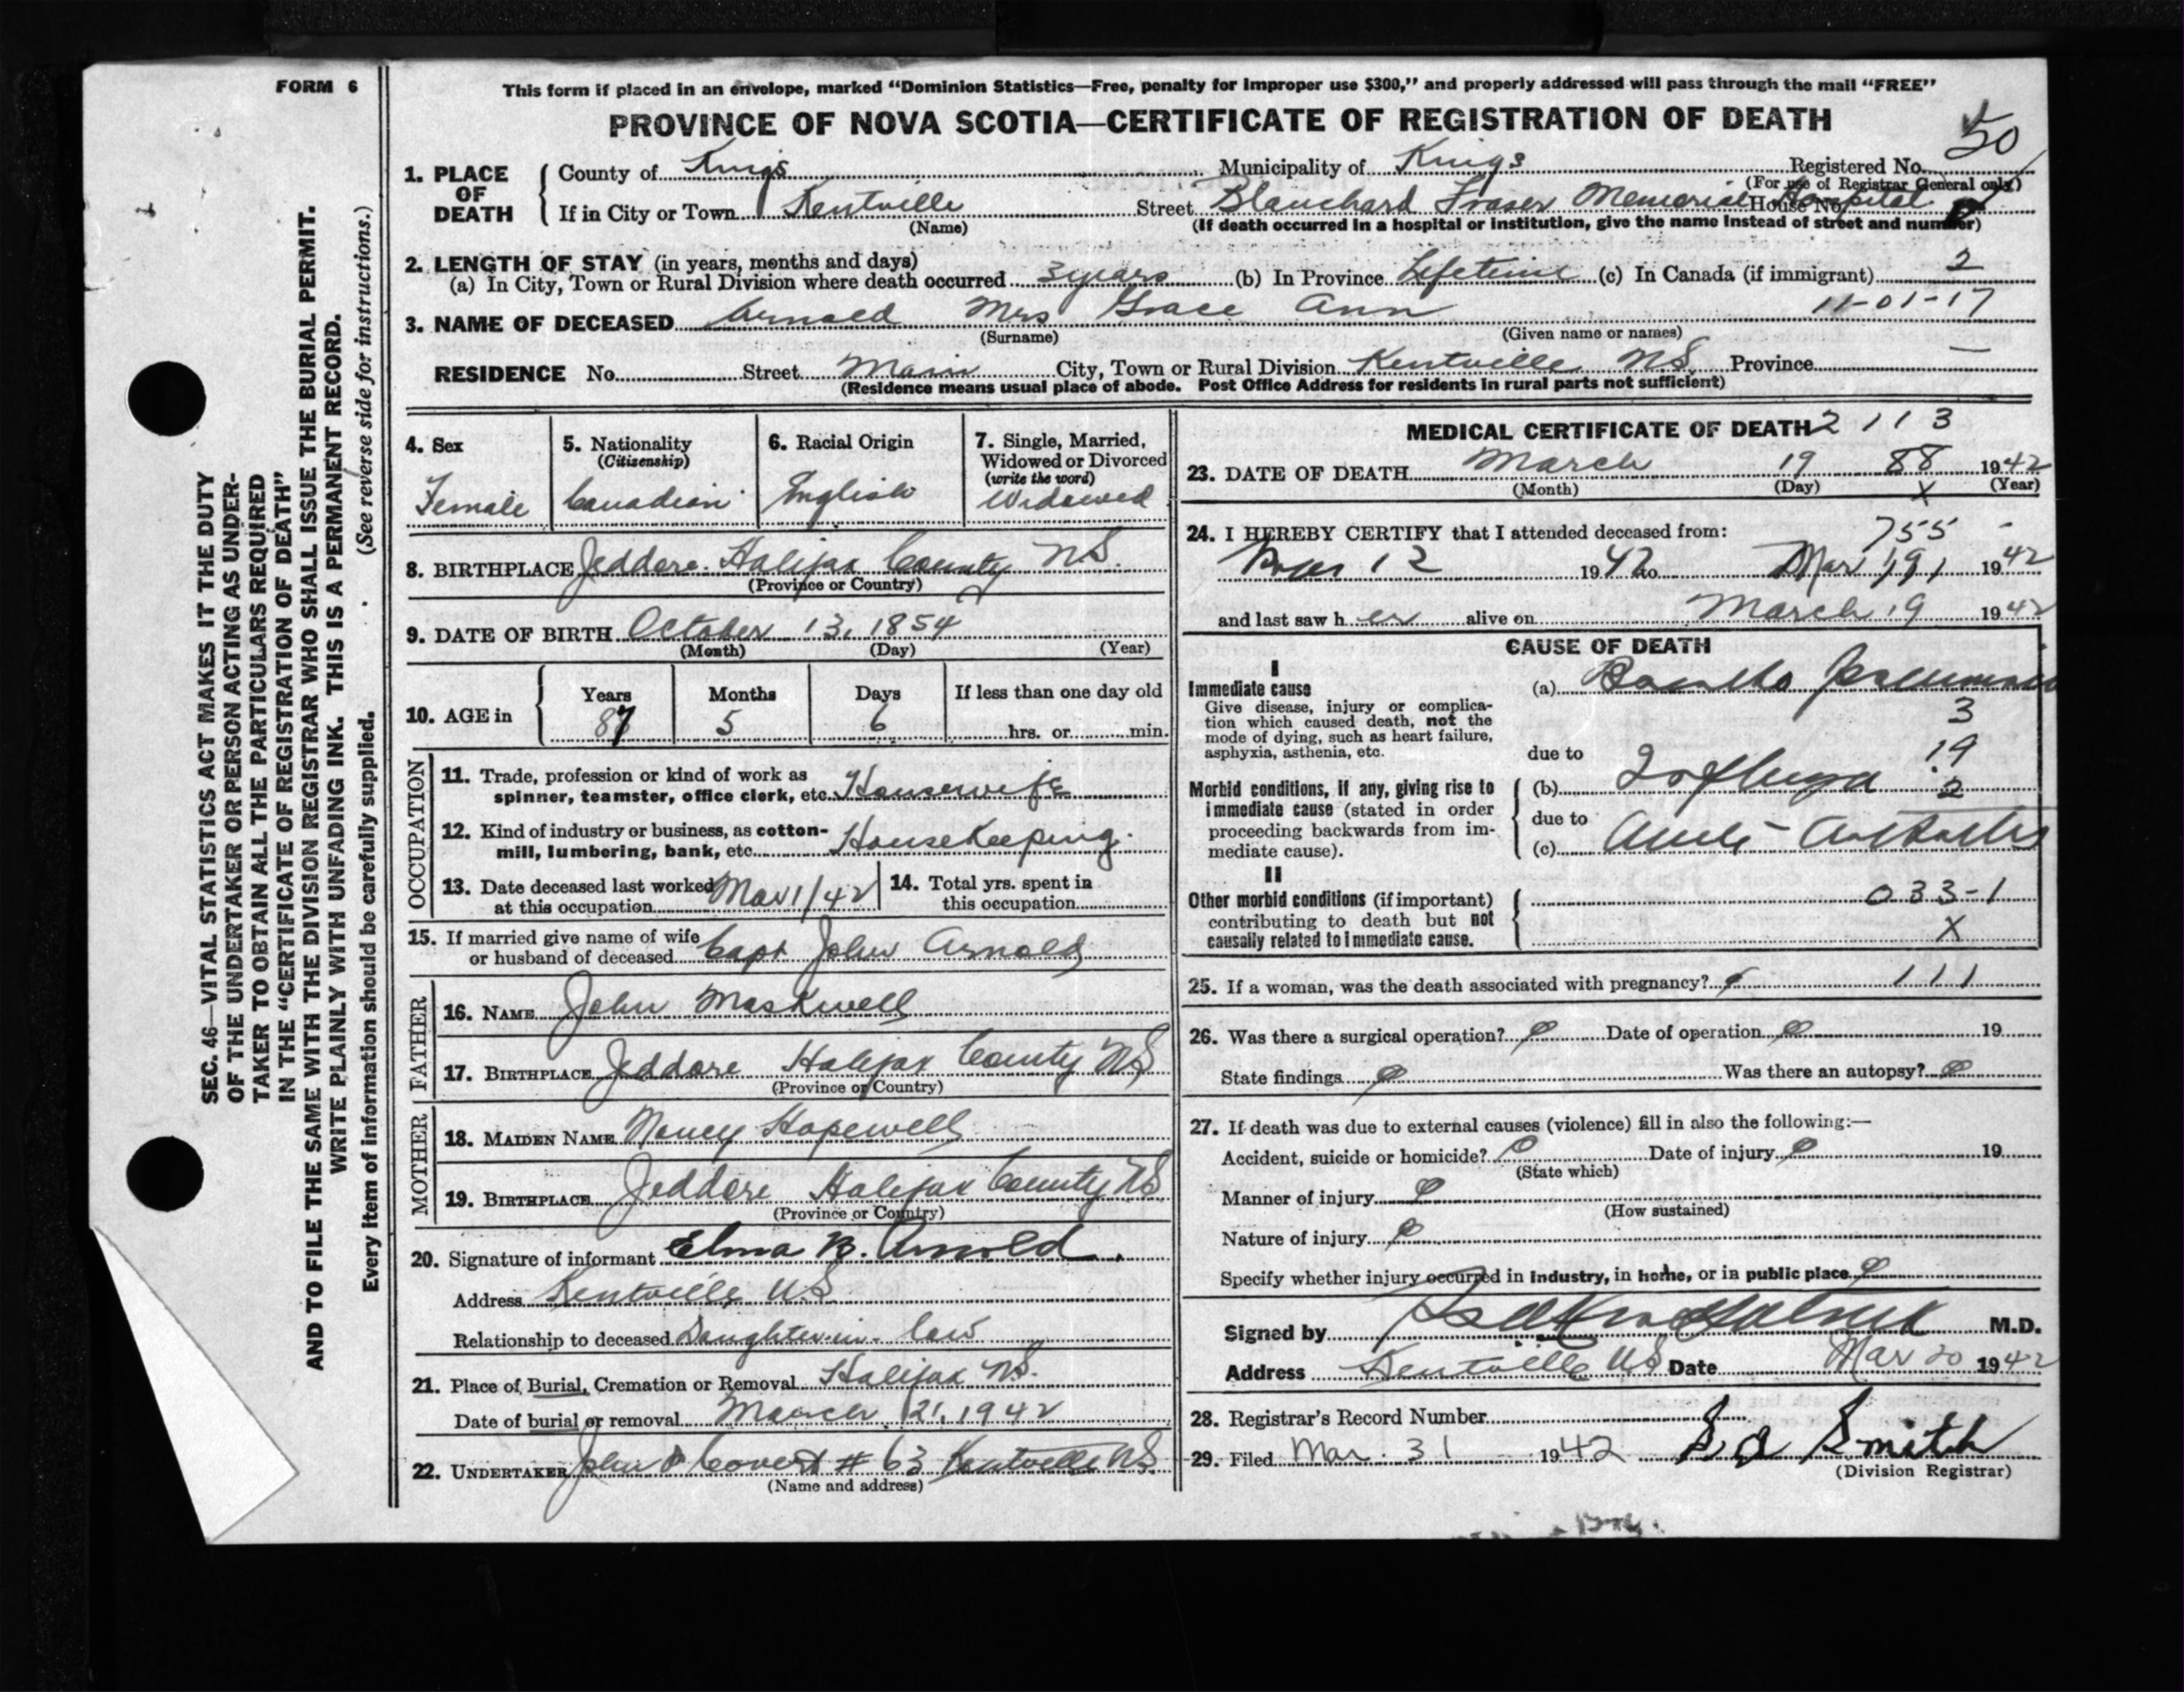 FORM 6
This form if placed in an envelope, marked "Dominion Statistics—Free, penalty for improper use $300," and properly addressed will pass through the mail "FREE"
PROVINCE OF NOVA SCOTIA—CERTIFICATE OF REGISTRATION OF DEATH
50
1. PLACE OF DEATH County of Kings Municipality of Kings Registered No.
(For use of Registrar General only)
If in City or Town Kentville Street Blanchard Fraser Memorial Hospital House No.
(Name) (If death occurred in a hospital or institution, give the name instead of street and number)
2. LENGTH OF STAY (in years, months and days)
(a) In City, Town or Rural Division where death occurred 3 years (b) In Province Lifetime (c) In Canada (if immigrant) 2
11-01-17
3. NAME OF DECEASED Arnold Mrs Grace Ann
(Surname) (Given name or names)
RESIDENCE No. Street Main City, Town or Rural Division Kentville N.S. Province —
(Residence means usual place of abode. Post Office Address for residents in rural parts not sufficient)
4. Sex
Female
5. Nationality
(Citizenship)
Canadian
6. Racial Origin
English
7. Single, Married,
Widowed or Divorced
(write the word)
Widowed
8. BIRTHPLACE Jeddore Halifax County N.S.
(Province or Country)
9. DATE OF BIRTH October 13, 1854
(Month) (Day) (Year)
10. AGE in
Years Months Days If less than one day old
87 5 6 hrs. or min.
OCCUPATION
11. Trade, profession or kind of work as
spinner, teamster, office clerk, etc. Housewife
12. Kind of industry or business, as cotton-
mill, lumbering, bank, etc. Housekeeping.
13. Date deceased last worked
at this occupation Mar 1/42
14. Total yrs. spent in
this occupation
15. If married give name of wife
or husband of deceased Capt John Arnold
FATHER
16. NAME John Maskwell
17. BIRTHPLACE Jeddore Halifax County NS
(Province or Country)
MOTHER
18. MAIDEN NAME Nancy Hopewell
19. BIRTHPLACE Jeddore Halifax County NS
(Province or Country)
20. Signature of informant Elma B. Arnold.
Address Kentville N.S
Relationship to deceased Daughter-in-law
21. Place of Burial, Cremation or Removal Halifax N.S.
Date of burial or removal March 21, 1942
22. UNDERTAKER John Covert # 63 Kentville NS.
(Name and address)
MEDICAL CERTIFICATE OF DEATH 2 1 1 3
23. DATE OF DEATH March 19 88 1942
(Month) (Day) X (Year)
24. I HEREBY CERTIFY that I attended deceased from: 755 -
12 1942 to Mar 19, 1942
and last saw her alive on March 19 1942
CAUSE OF DEATH
I
Immediate cause
Give disease, injury or complica-
tion which caused death, not the
mode of dying, such as heart failure,
asphyxia, asthenia, etc.
(a) Broncho Pneumonia
3
due to 19
Morbid conditions, if any, giving rise to
immediate cause (stated in order
proceeding backwards from im-
mediate cause).
(b) 2
due to
(c)
II
Other morbid conditions (if important)
contributing to death but not
causally related to immediate cause.
033-1
X
25. If a woman, was the death associated with pregnancy? 1 1 1
26. Was there a surgical operation? Date of operation 19
State findings Was there an autopsy?
27. If death was due to external causes (violence) fill in also the following:—
Accident, suicide or homicide? Date of injury 19
(State which)
Manner of injury
(How sustained)
Nature of injury
Specify whether injury occurred in industry, in home, or in public place
Signed by M.D.
Address Kentville NS Date Mar 20 1942
28. Registrar's Record Number
29. Filed Mar. 31 1942 Smith
(Division Registrar)
SEC. 46—VITAL STATISTICS ACT MAKES IT THE DUTY
OF THE UNDERTAKER OR PERSON ACTING AS UNDER-
TAKER TO OBTAIN ALL THE PARTICULARS REQUIRED
IN THE "CERTIFICATE OF REGISTRATION OF DEATH"
AND TO FILE THE SAME WITH THE DIVISION REGISTRAR WHO SHALL ISSUE THE BURIAL PERMIT.
WRITE PLAINLY WITH UNFADING INK. THIS IS A PERMANENT RECORD.
Every item of information should be carefully supplied. (See reverse side for instructions.)